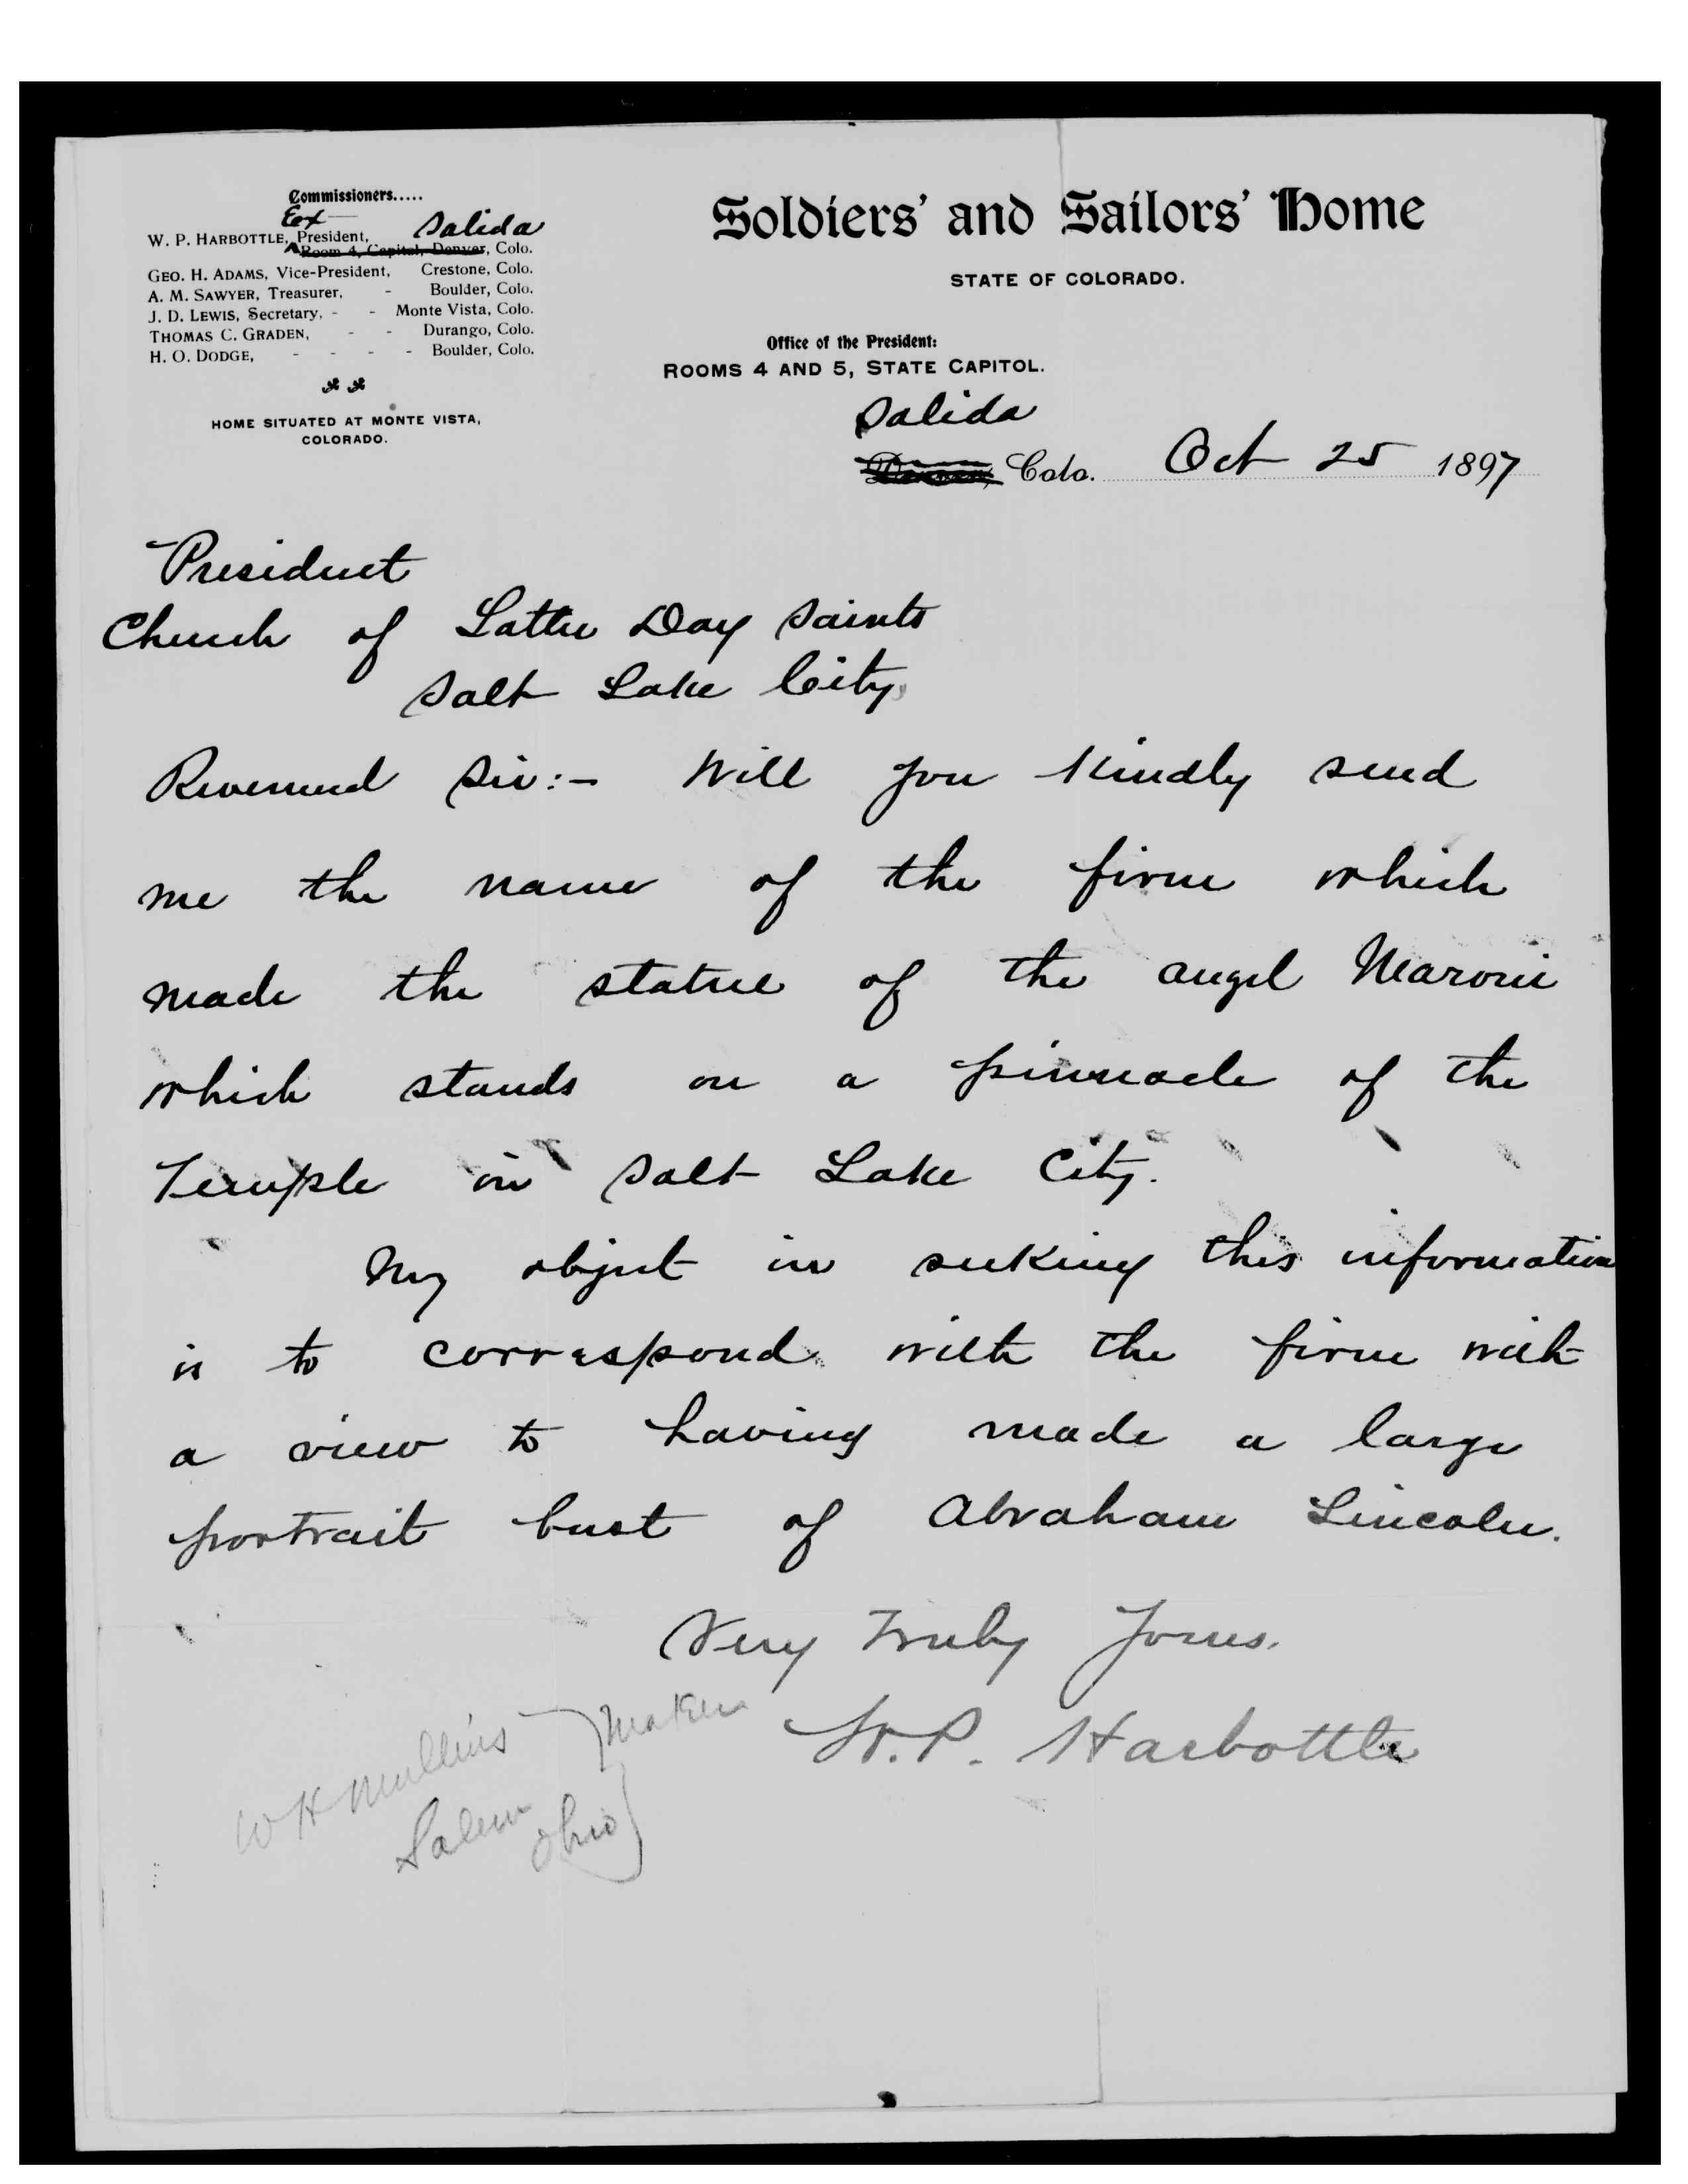 Commissioners.....
Eex
Salida
W. P. HARBOTTLE, President,
Room 4, Capitol, Denver, Colo.
GEO. H. ADAMS, Vice-President, Crestone, Colo.
A. M. SAWYER, Treasurer, - Boulder, Colo.
J. D. LEWIS, Secretary, - - Monte Vista, Colo.
THOMAS C. GRADEN, - - Durango, Colo.
H. O. DODGE, - - - - Boulder, Colo.
HOME SITUATED AT MONTE VISTA,
COLORADO.
Soldiers' and Sailors' Home
STATE OF COLORADO.
Office of the President:
ROOMS 4 AND 5, STATE CAPITOL.
Salida
Denver, Colo. Oct 25 1897
President
Church of Latter Day Saints
Salt Lake City,
Reverend Sir:- Will you kindly send
me the name of the firm which
made the statue of the angel Maroni
which stands on a pinnacle of the
Temple in Salt Lake City.
My object in seeking this information
is to correspond with the firm with
a view to having made a large
portrait bust of Abraham Lincoln.
Very Truly Yours.
W. P. Harbottle
W H Mullins } Maker
Salem Ohio